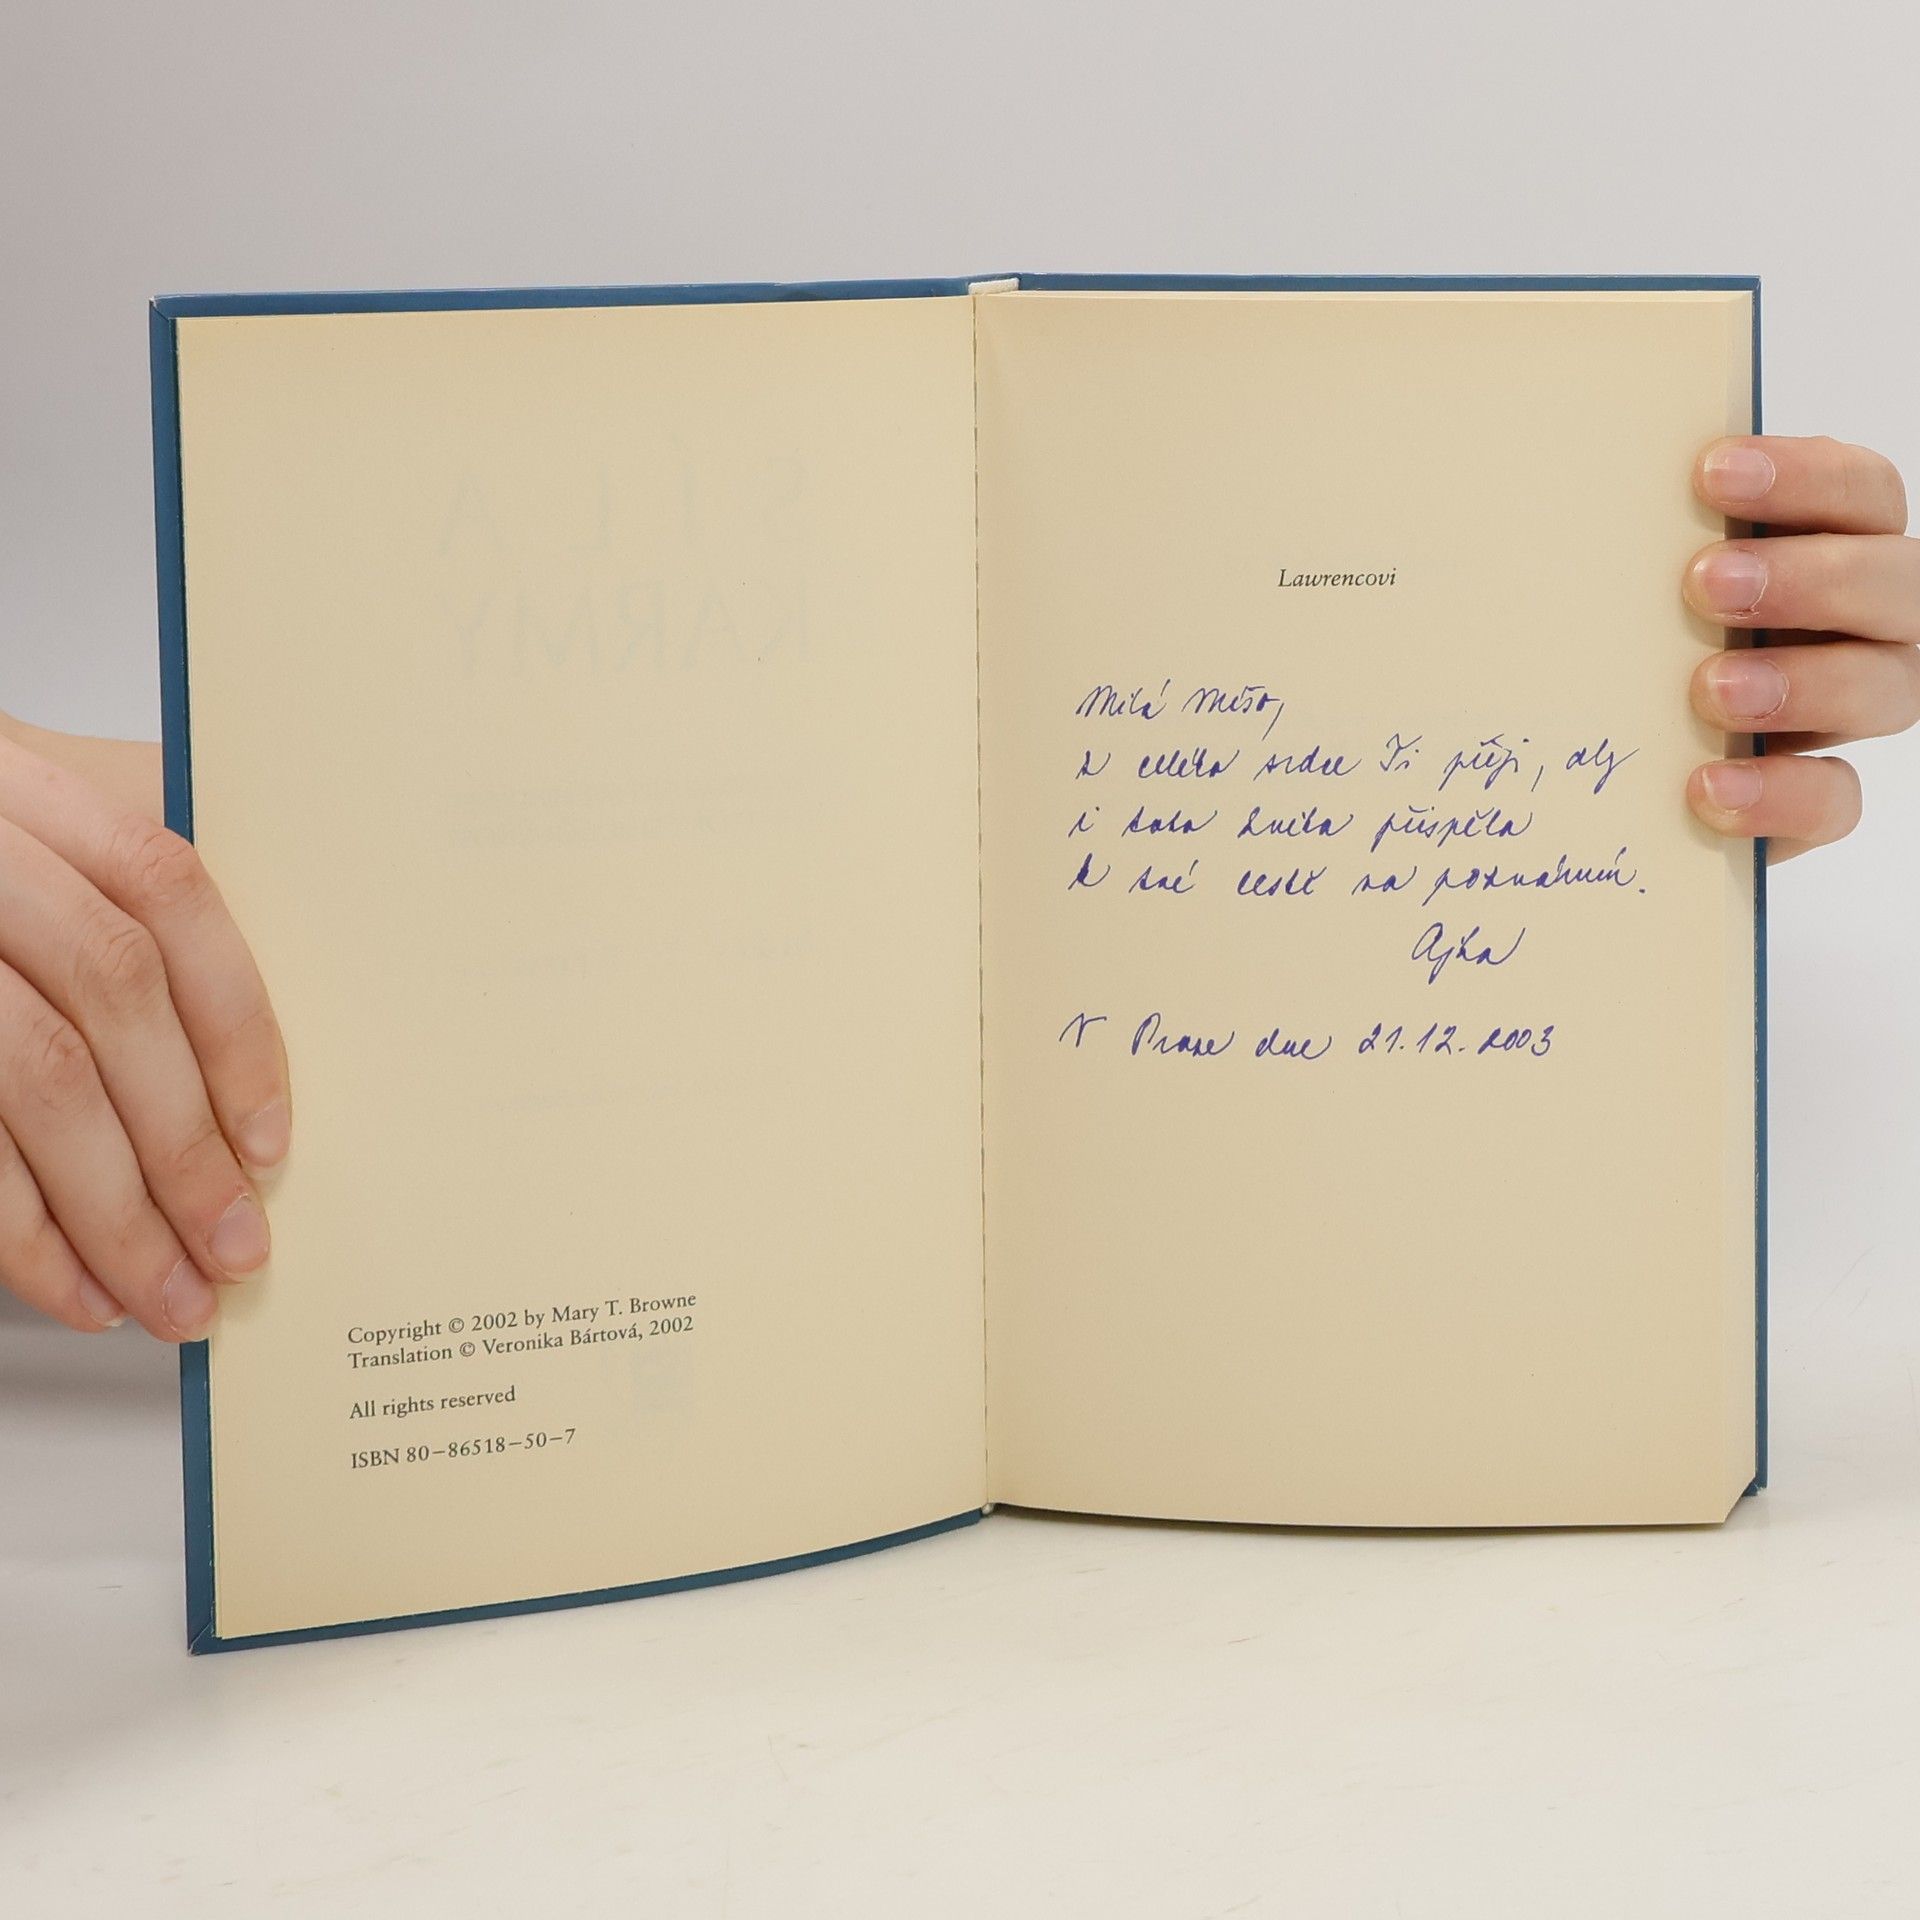 SÍLA
KARMY
Copyright © 2002 by Mary T. Browne
Translation © Veronika Bártová, 2002
All rights reserved
ISBN 80–86518–50–7
Lawrencovi
Milá
z celého srdce Ti přeji, aby
i tato kniha přispěla
k tvé cestě za poznáním.
Ajka
V Praze dne 21.12.2003